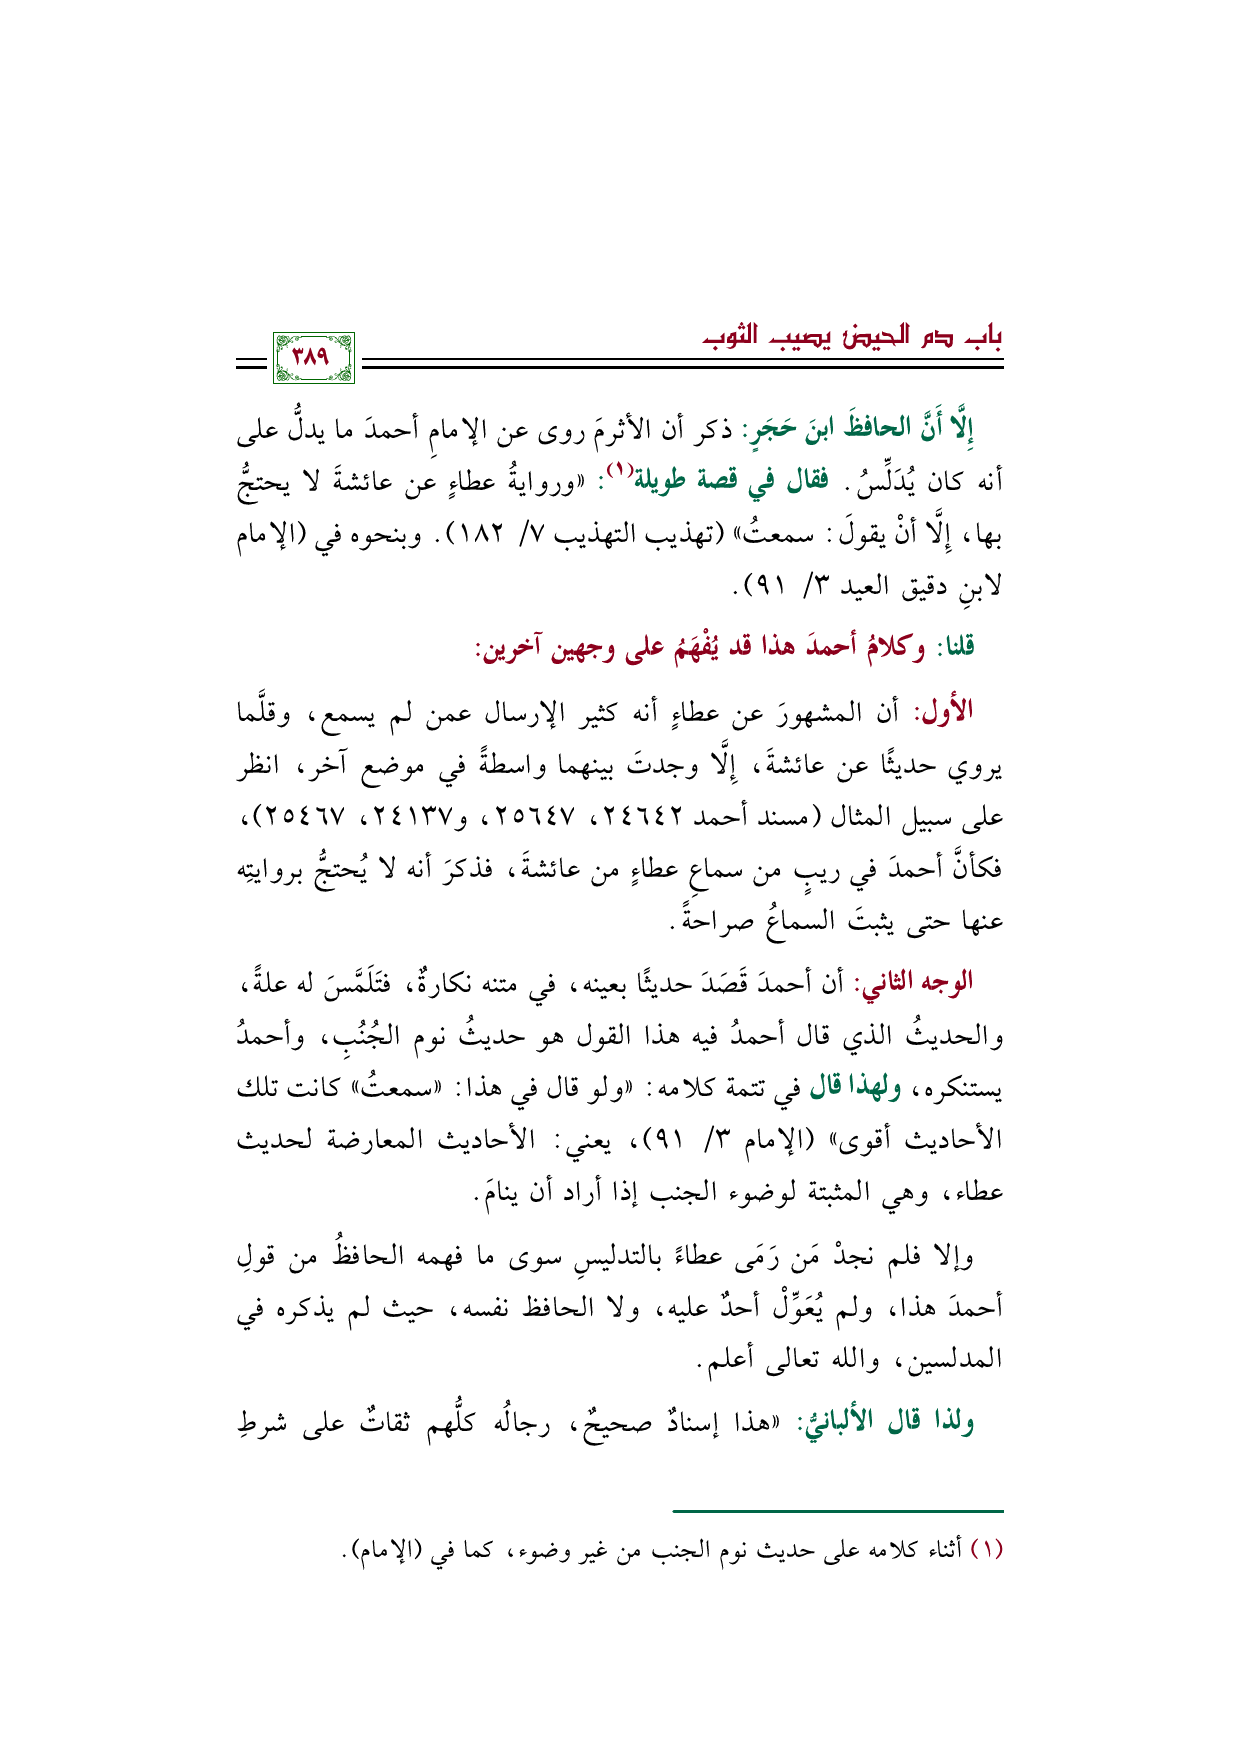 باب دم الحيض يصيب الثوب
٣٨٩
إِلَّا أَنَّ الحافظَ ابنَ حَجَرٍ: ذكر أن الأثرمَ روى عن الإمامِ أحمدَ ما يدلُّ على
أنه كان يُدَلِّسُ. فقال في قصة طويلة(١): «وروايةُ عطاءٍ عن عائشةَ لا يحتجُّ
بها، إِلَّا أنْ يقولَ: سمعتُ» (تهذيب التهذيب ٧/ ١٨٢). وبنحوه في (الإمام
لابنِ دقيق العيد ٣/ ٩١).
قلنا: وكلامُ أحمدَ هذا قد يُفْهَمُ على وجهين آخرين:
الأول: أن المشهورَ عن عطاءٍ أنه كثير الإرسال عمن لم يسمع، وقلَّما
يروي حديثًا عن عائشةَ، إِلَّا وجدتَ بينهما واسطةً في موضع آخر، انظر
على سبيل المثال (مسند أحمد ٢٤٦٤٢، ٢٥٦٤٧، و٢٤١٣٧، ٢٥٤٦٧)،
فكأنَّ أحمدَ في ريبٍ من سماعِ عطاءٍ من عائشةَ، فذكرَ أنه لا يُحتجُّ بروايتِه
عنها حتى يثبتَ السماعُ صراحةً.
الوجه الثاني: أن أحمدَ قَصَدَ حديثًا بعينه، في متنه نكارةٌ، فتَلَمَّسَ له علةً،
والحديثُ الذي قال أحمدُ فيه هذا القول هو حديثُ نوم الجُنُبِ، وأحمدُ
يستنكره، ولهذا قال في تتمة كلامه: «ولو قال في هذا: «سمعتُ» كانت تلك
الأحاديث أقوى» (الإمام ٣/ ٩١)، يعني: الأحاديث المعارضة لحديث
عطاء، وهي المثبتة لوضوء الجنب إذا أراد أن ينامَ.
وإلا فلم نجدْ مَن رَمَى عطاءً بالتدليسِ سوى ما فهمه الحافظُ من قولِ
أحمدَ هذا، ولم يُعَوِّلْ أحدٌ عليه، ولا الحافظ نفسه، حيث لم يذكره في
المدلسين، والله تعالى أعلم.
ولذا قال الألبانيُّ: «هذا إسنادٌ صحيحٌ، رجالُه كلُّهم ثقاتٌ على شرطِ
(١) أثناء كلامه على حديث نوم الجنب من غير وضوء، كما في (الإمام).